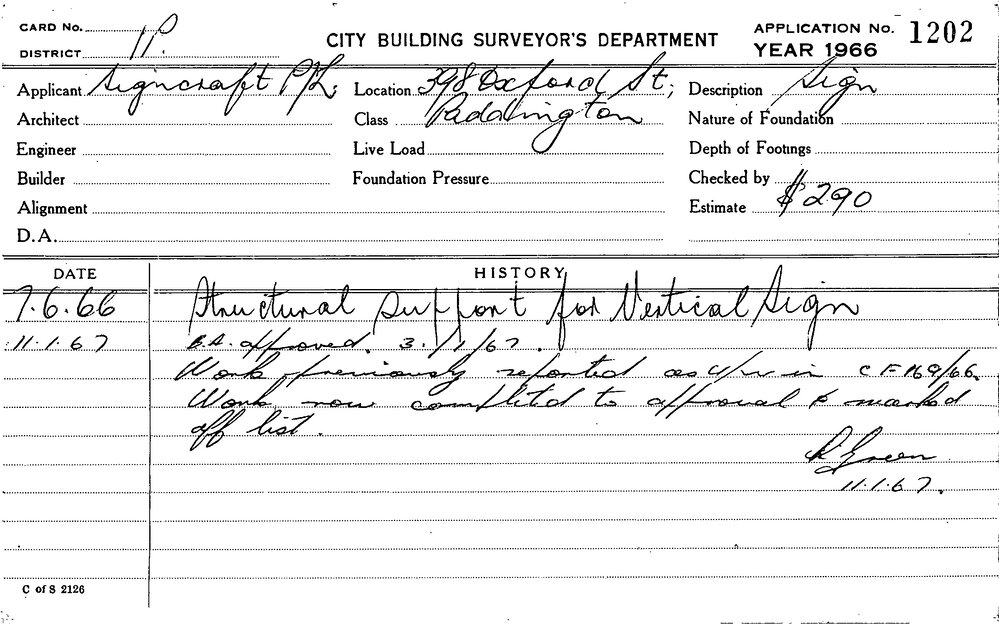 CARD No.
DISTRICT 11P.
CITY BUILDING SURVEYOR'S DEPARTMENT
APPLICATION No. 1202
YEAR 1966
Applicant Signcraft P/L; Location 398 Oxford St; Description Sign
Architect Class Paddington Nature of Foundation
Engineer Live Load Depth of Footings
Builder Foundation Pressure Checked by
Alignment Estimate $290
D.A.
DATE HISTORY
7.6.66 Structural support for Vertical Sign
11.1.67 B.A. approved. 3./1/67.
Work previously reported as u/w in C F 169/66.
Work now completed to approval & marked
off list.
R Green
11.1.67.
C of S 2126